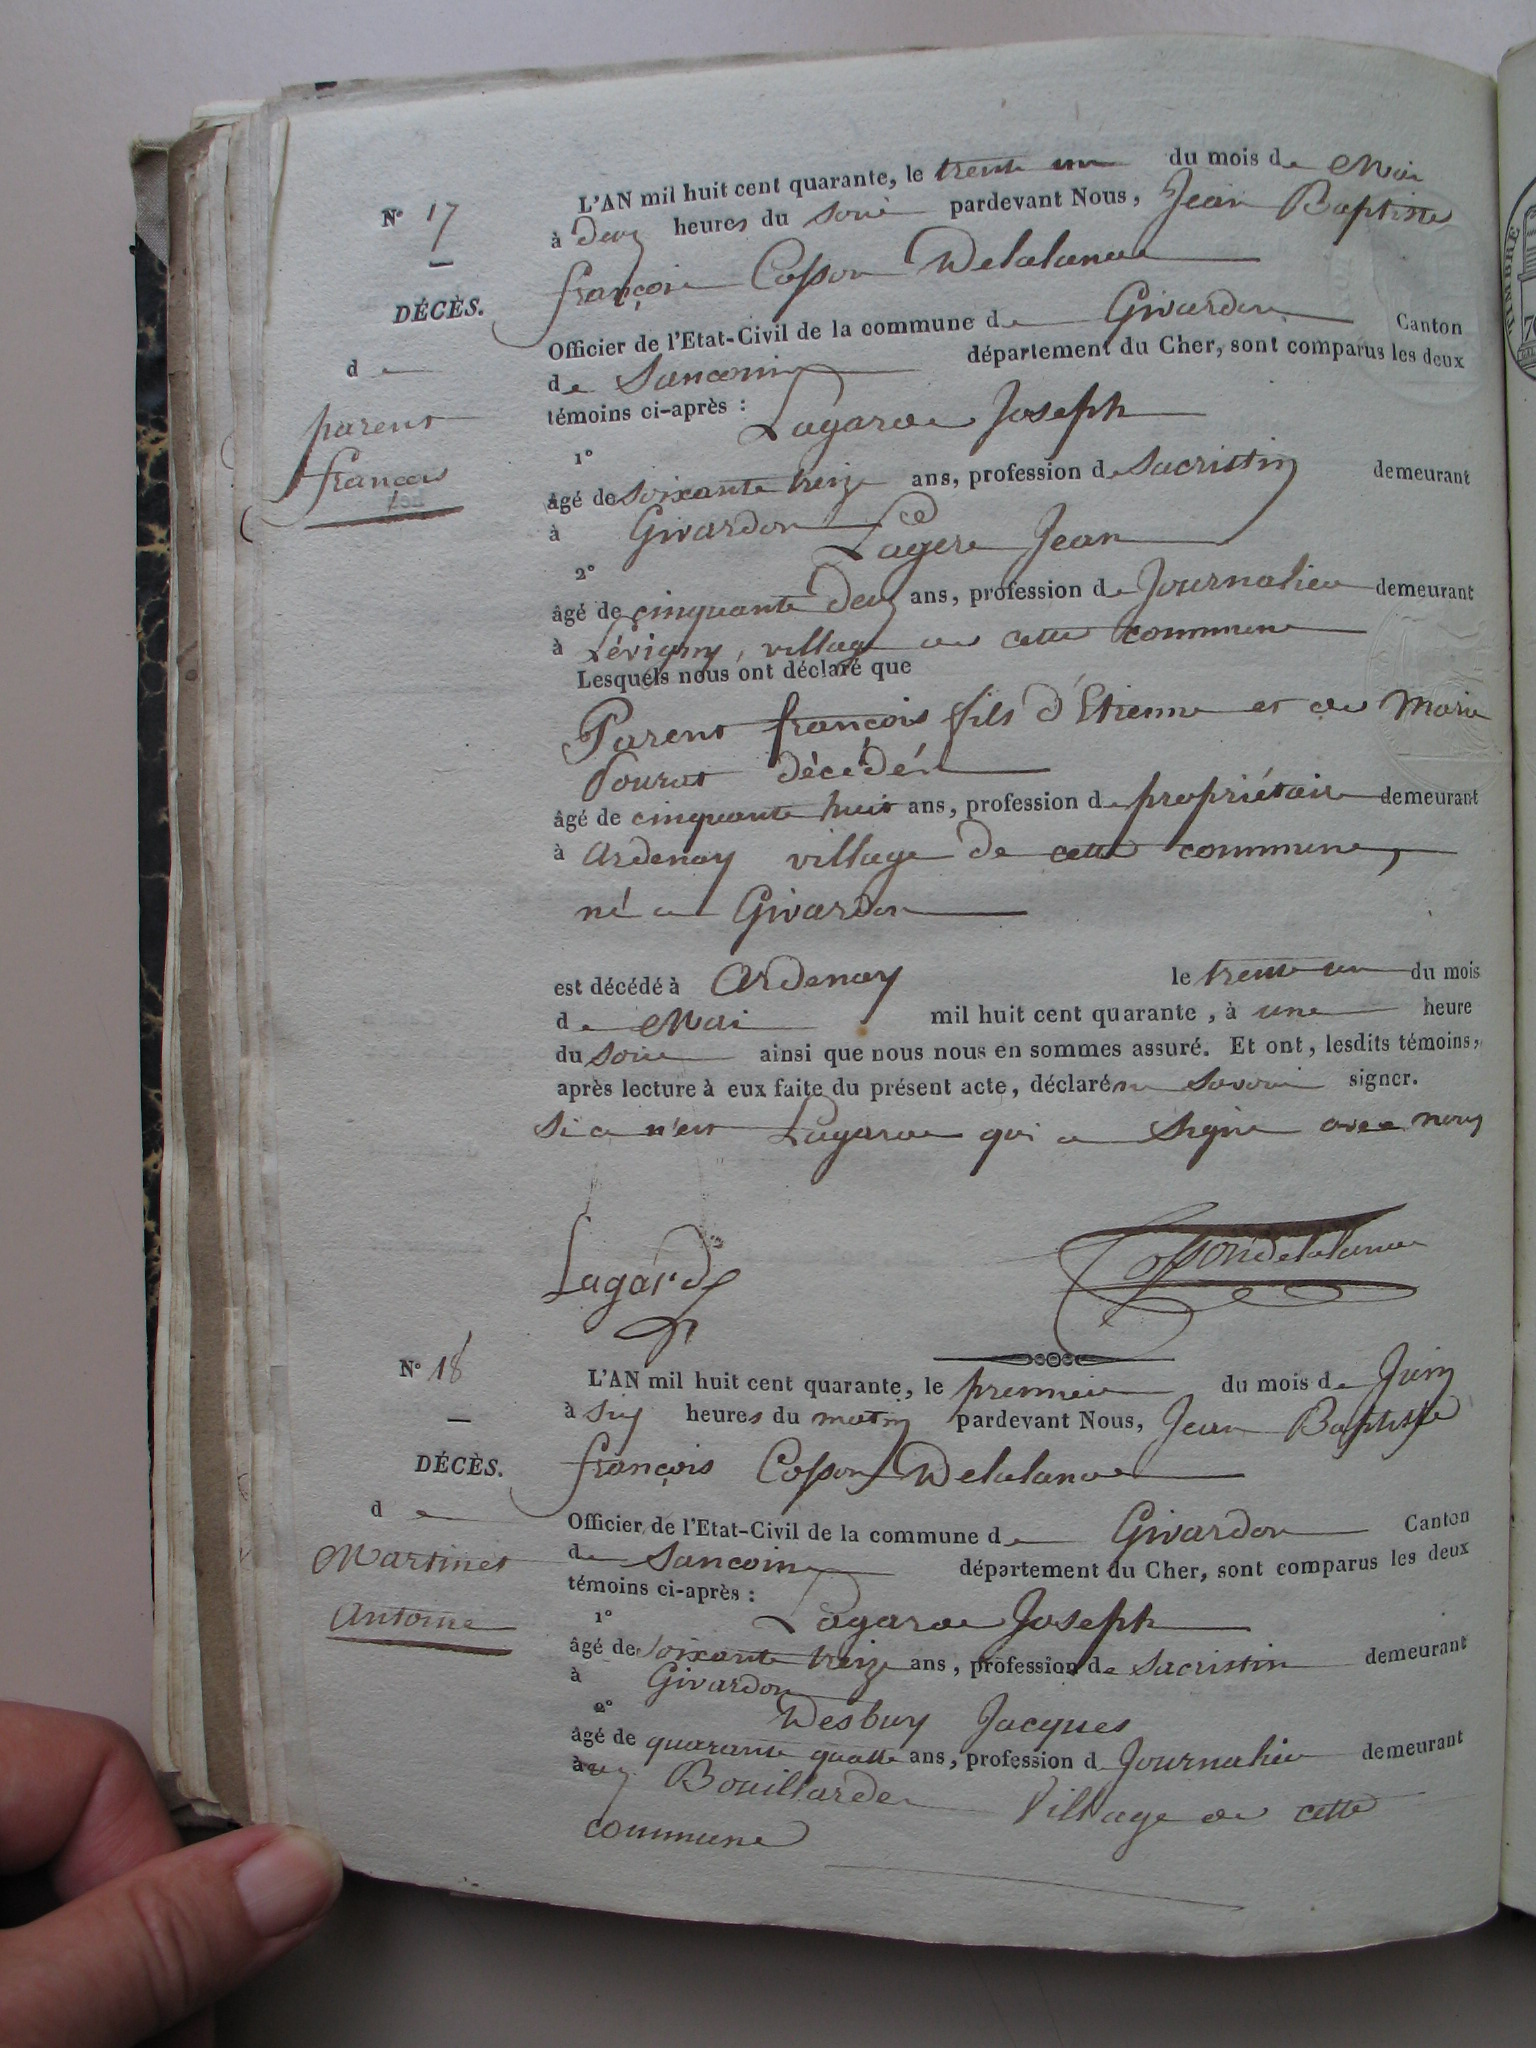 L'AN mil huit cent quarante, le trente un du mois de Mai
N° 17
à deux heures du soire pardevant Nous, Jean Baptiste
françois Cosson Delalande
DÉCÈS.
Officier de l'Etat-Civil de la commune de Givardon Canton
de
de Sancoins département du Cher, sont comparus les deux
témoins ci-après :
parent
françois
1° Lagarde Joseph
âgé de soixante treize ans, profession de Sacristin demeurant
à Givardon
2° Lagere Jean
âgé de cinquante deux ans, profession de Journalier demeurant
à Lévigny, village de cette commune
Lesquels nous ont déclaré que
Parent françois fils d'Etienne et de Marie
décédés
âgé de cinquante huit ans, profession de propriétaire demeurant
à Ardenay village de cette commune,
né a Givardon
est décédé à Ardenay le trente un du mois
de Mai mil huit cent quarante, à une heure
du soire ainsi que nous nous en sommes assuré. Et ont, lesdits témoins,
après lecture à eux faite du présent acte, déclaré ne savoir signer.
Si ce n'est Lagarde qui a signé avec nous
Lagarde Cossondelalande
N° 18
L'AN mil huit cent quarante, le premier du mois de Juin
à six heures du matin pardevant Nous, Jean Baptiste
DÉCÈS.
françois Cosson Delalande
de
Officier de l'Etat-Civil de la commune de Givardon Canton
Martinet
de Sancoins département du Cher, sont comparus les deux
témoins ci-après :
Antoine
1° Lagarde Joseph
âgé de soixante treize ans, profession de Sacristin demeurant
à Givardon
2° Desbuy Jacques
âgé de quarante quatre ans, profession de Journalier demeurant
aux Bouillardes Village de cette
commune
TIMBRE